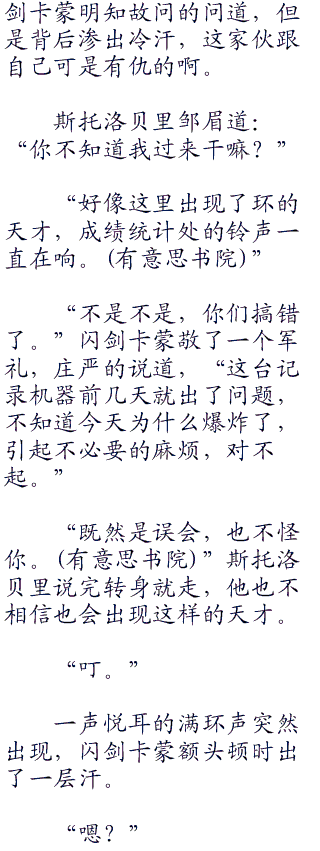 剑卡蒙明知故问的问道，但
是背后渗出冷汗，这家伙跟
自己可是有仇的啊。
斯托洛贝里邹眉道：
“你不知道我过来干嘛？”
“好像这里出现了环的
天才，成绩统计处的铃声一
直在响。(有意思书院)”
“不是不是，你们搞错
了。”闪剑卡蒙敬了一个军
礼，庄严的说道，“这台记
录机器前几天就出了问题，
不知道今天为什么爆炸了，
引起不必要的麻烦，对不
起。”
“既然是误会，也不怪
你。(有意思书院)”斯托洛
贝里说完转身就走，他也不
相信也会出现这样的天才。
“叮。”
一声悦耳的满环声突然
出现，闪剑卡蒙额头顿时出
了一层汗。
“嗯？”